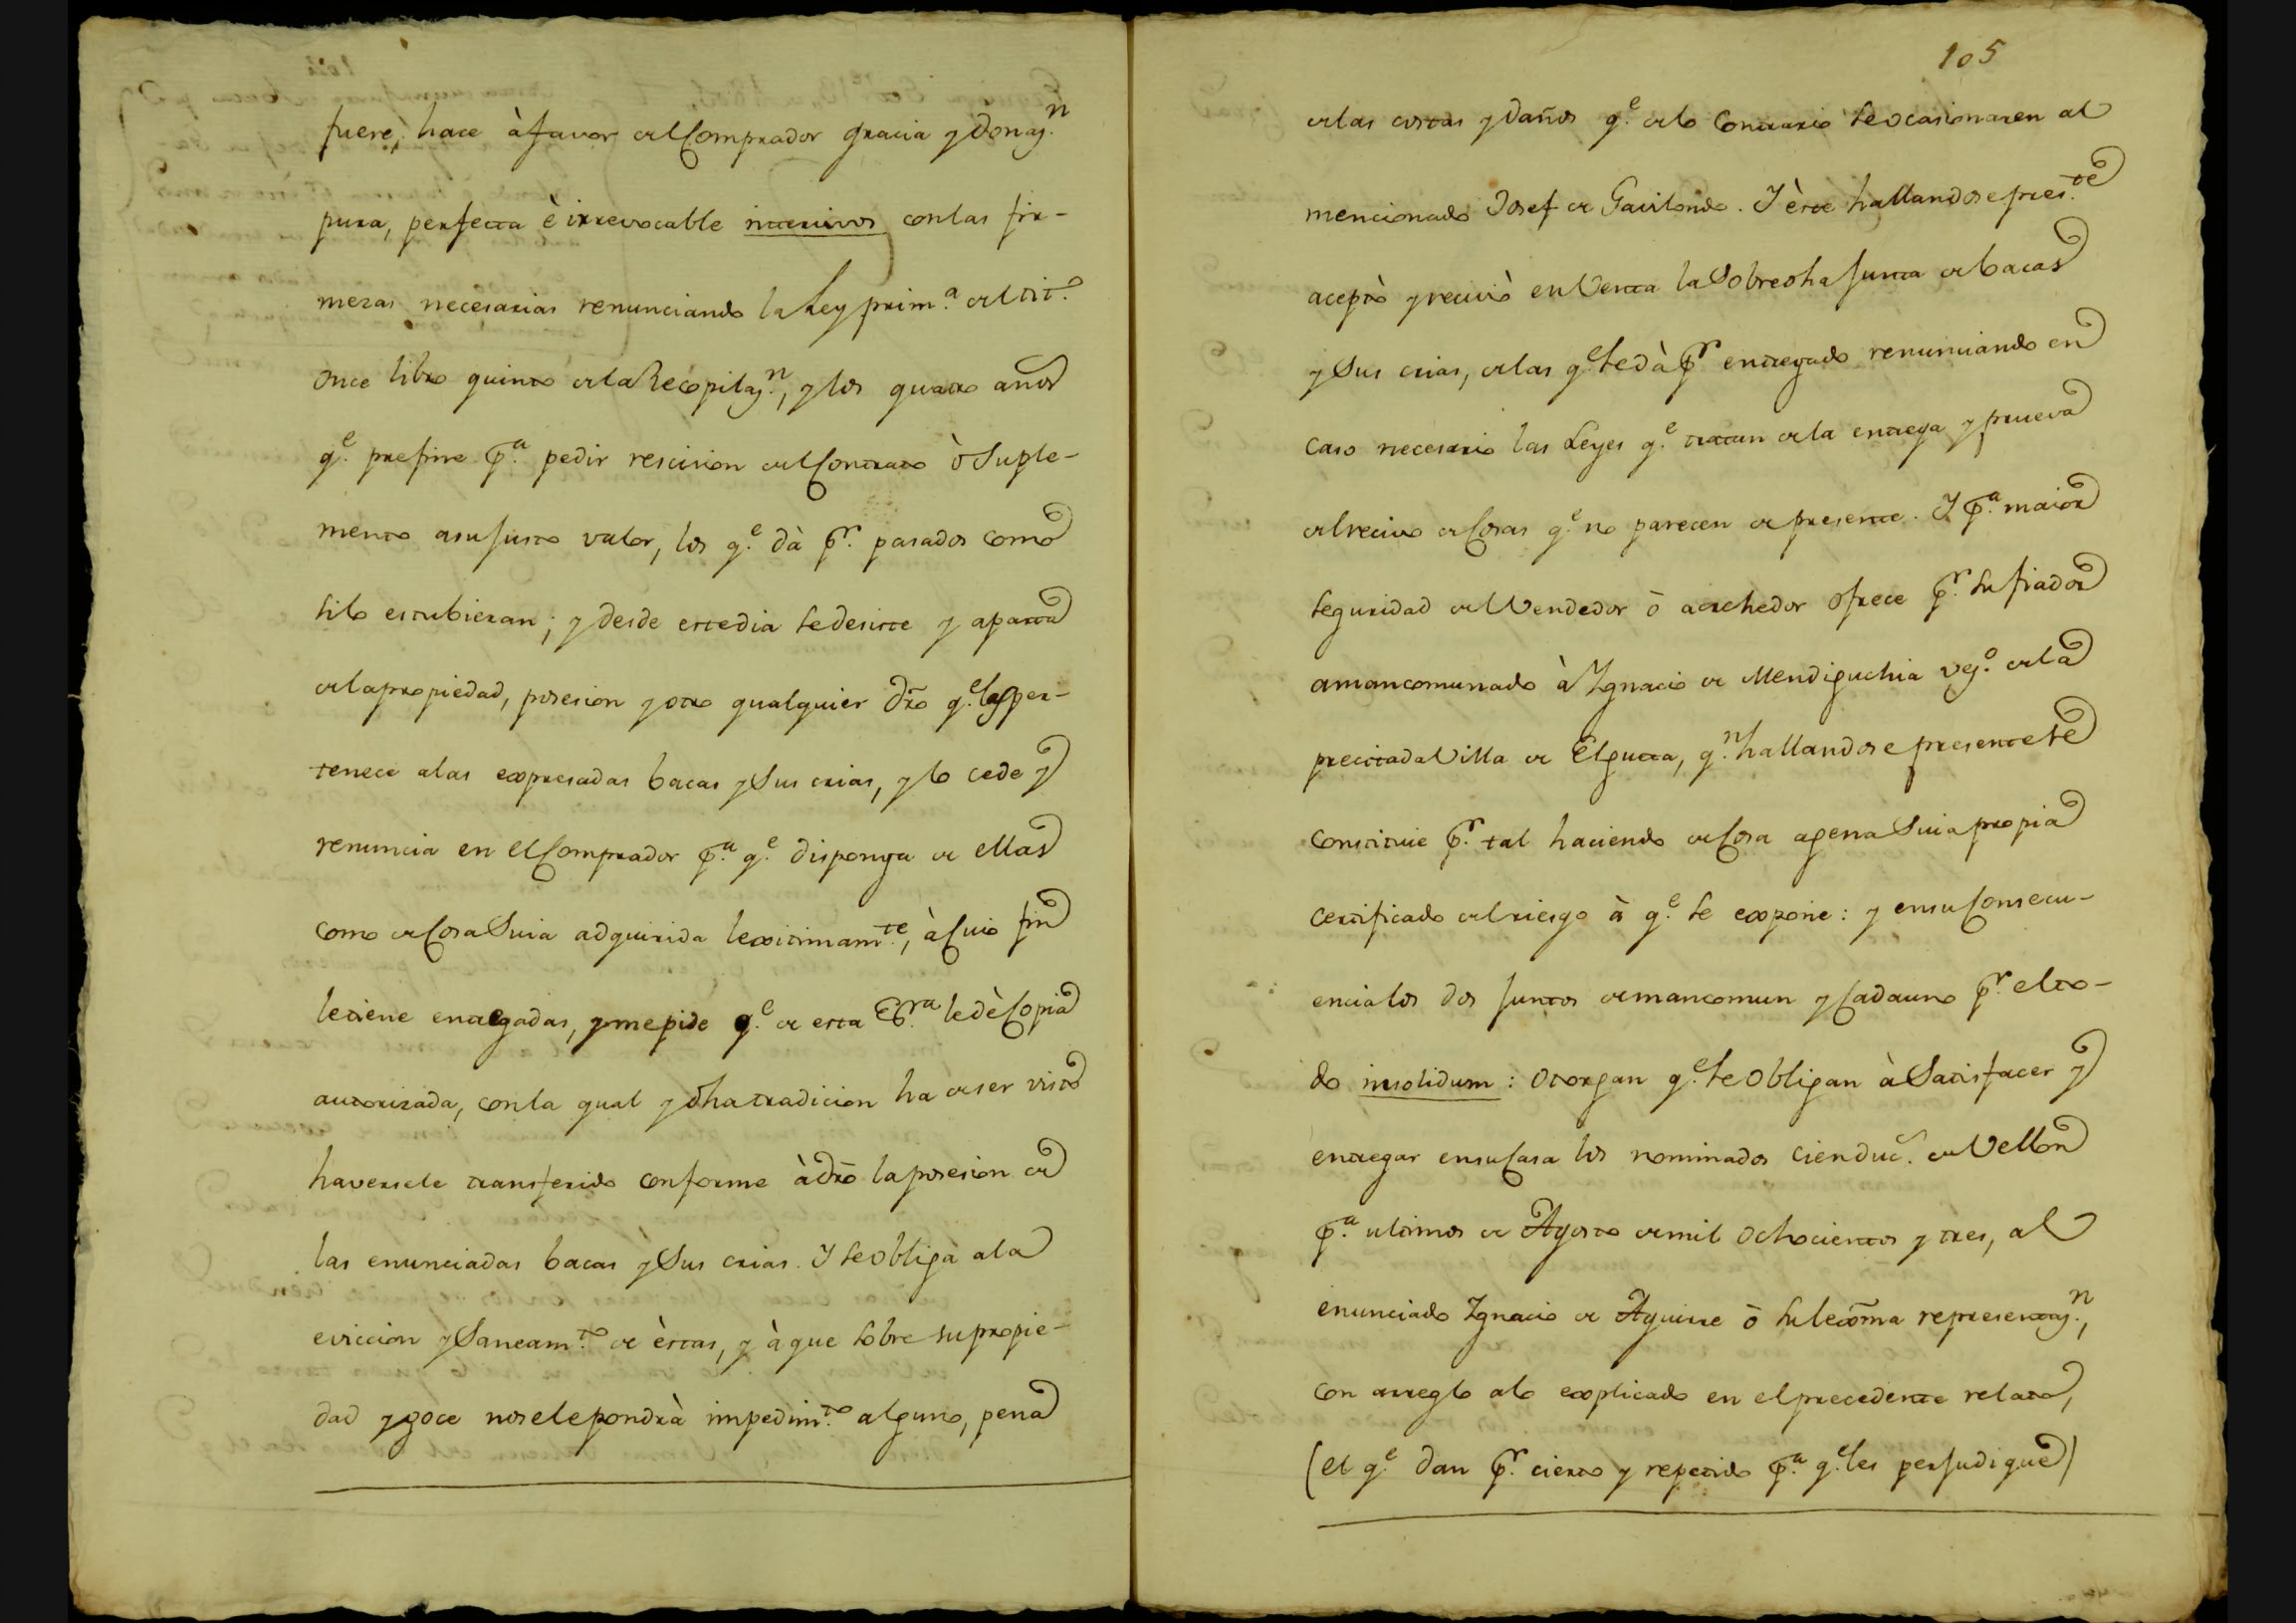 fuere, hace à favor del Comprador gracia y donaz.n
pura, perfecta è irrevocable intervivos con las fir-
mezas necesarias renunciando la Ley prim.a del tit.o
once libro quinto de la Recopilaz.n, y los quatro años
q.e prefine p.a pedir rescision del Contrato ò Suple-
mento a su justo valor, los q.e dà p.r pasados como
si lo estubieran; y desde este dia se desiste y aparta
de la propiedad, posesion y otro qualquier dro q.e le per-
tenece a las expresadas bacas y Sus crias, y lo cede y
renuncia en el Comprador p.a q.e disponga de ellas
como de Cosa Suia adquirida lexitimam.te, à Cuio fin
le tiene entregadas, y me pide q.e de esta Es.ra le dè Copia
autorizada, con la qual y dha tradicion ha de ser visto
haversele transferido conforme à dro la posesion de
las enunciadas bacas y Sus crias. Y se obliga a la
eviccion y Saneam.to de èstas, y à que sobre su propie-
dad y goce no se le pondrà impedim.to alguno, pena
105
de las costas y daños q.e de lo Contrario se ocasionaren al
mencionado Josef de Gavilondo. Y èste hallandose pres.te
aceptò y reciviò en Venta la Sobre dha Junta de bacas
y Sus crias, de las q.e se dà p.r entregado renunciando en
caso necesario las Leyes q.e tratan de la entrega y prueva
del recivo de Cosas q.e no parecen de presente. Y p.a maior
seguridad del Vendedor ò acrehedor ofrece p.r su fiador
amancomunado à Ygnacio de Mendiguchia vez.o de la
precitada Villa de Elgueta, q.n hallandose presente se
constituie p.r tal haciendo de Cosa agena Suia propia
certificado del riesgo à q.e se expone: y en su Consecu-
encia los dos juntos de mancomun y Cada uno p.r el to-
do insolidum: otorgan q.e se obligan à Satisfacer y
entregar en su Casa los nominados cien duc.s de Vellon
p.a ultimos de Agosto de mil ochocientos y tres, al
enunciado Ygnacio de Aguirre ò su lexma representaz.n,
con arreglo a lo explicado en el precedente relato,
(el q.e dan p.r cierto y repetido p.a q.e les perjudique)